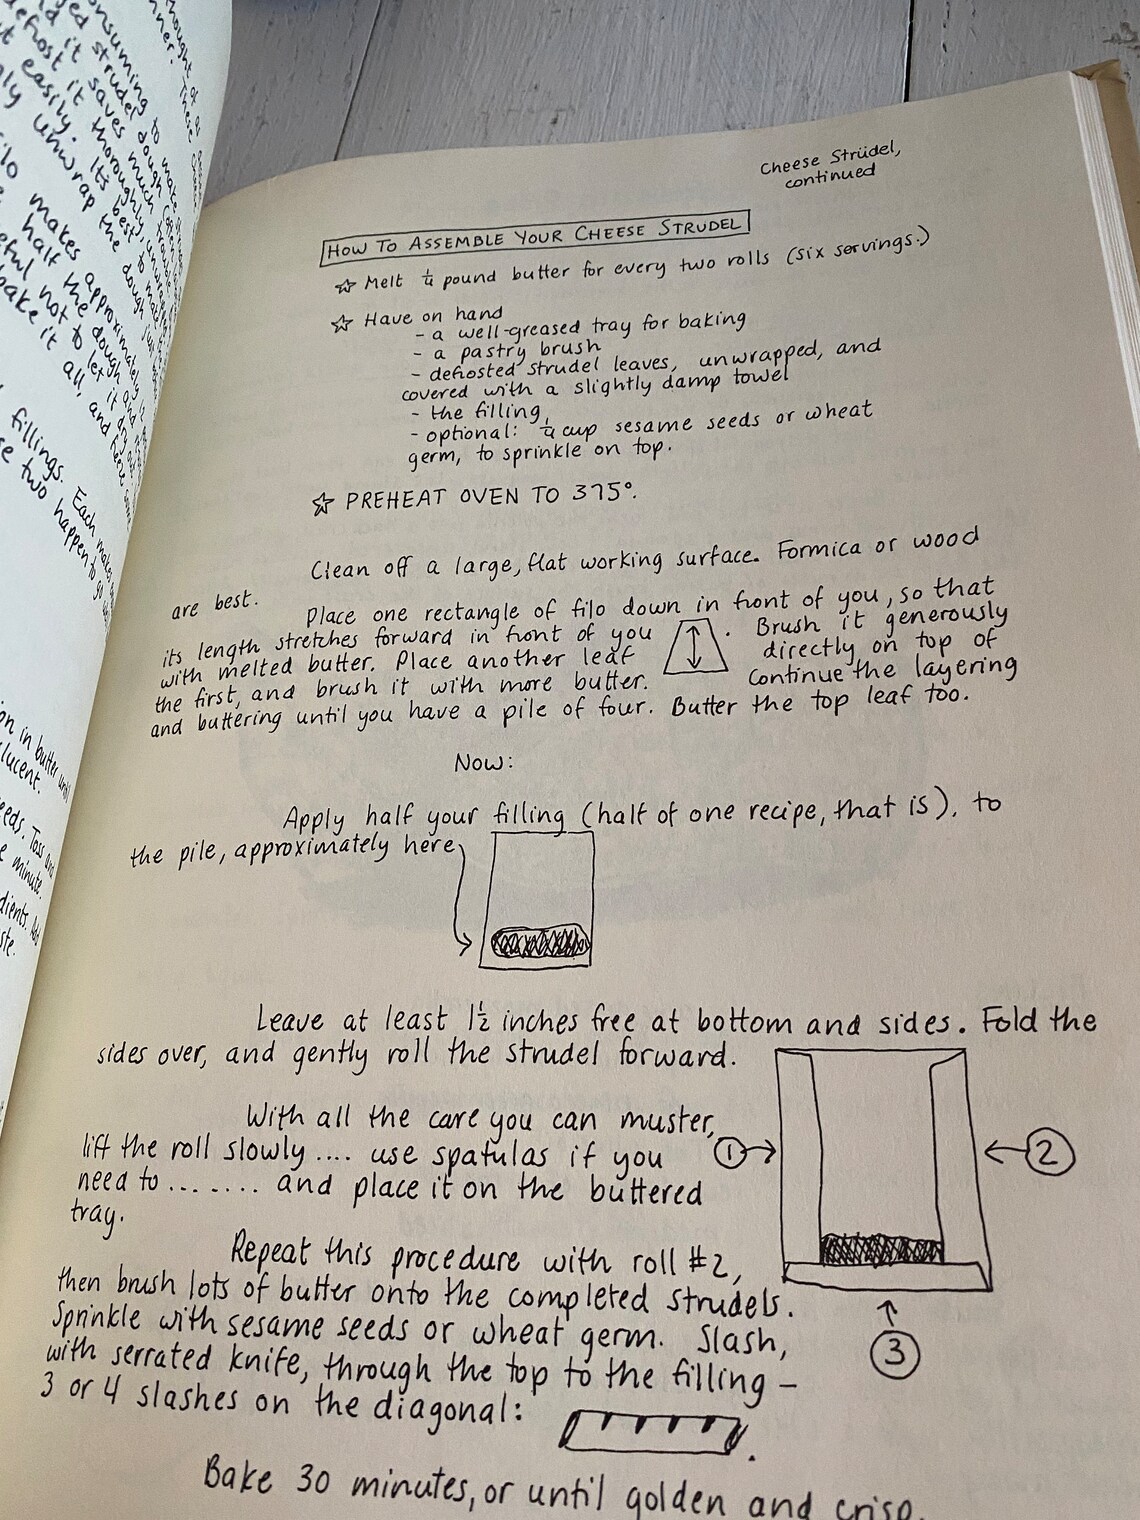 thought of as
nner. These
onsuming to make
ged strudel dough
nd it saves much trouble
defrost it thoroughly, unwrapped
t easily. It's best to make
ly unwrap the dough
ilo makes approximately
half the dough and
eful not to let it dry out
bake it all, and
fillings. Each makes
se two happen to go
ion in butter until
lucent.
eeds. Toss and
e minute.
dients. Add
ste.
Cheese Strüdel,
continued
HOW TO ASSEMBLE YOUR CHEESE STRUDEL
☆ Melt ¼ pound butter for every two rolls (six servings.)
☆ Have on hand
- a well-greased tray for baking
- a pastry brush
- defrosted strudel leaves, unwrapped, and
covered with a slightly damp towel
- the filling,
- optional: ¼ cup sesame seeds or wheat
germ, to sprinkle on top.
☆ PREHEAT OVEN TO 375°.
Clean off a large, flat working surface. Formica or wood
are best.
Place one rectangle of filo down in front of you, so that
its length stretches forward in front of you . Brush it generously
with melted butter. Place another leaf directly on top of
the first, and brush it with more butter. Continue the layering
and buttering until you have a pile of four. Butter the top leaf too.
Now:
Apply half your filling (half of one recipe, that is), to
the pile, approximately here
Leave at least 1½ inches free at bottom and sides. Fold the
sides over, and gently roll the strudel forward.
With all the care you can muster,
lift the roll slowly .... use spatulas if you
need to ....... and place it on the buttered
tray.
1
2
3
Repeat this procedure with roll #2,
then brush lots of butter onto the completed strudels.
Sprinkle with sesame seeds or wheat germ. Slash,
with serrated knife, through the top to the filling –
3 or 4 slashes on the diagonal: .
Bake 30 minutes, or until golden and crisp.